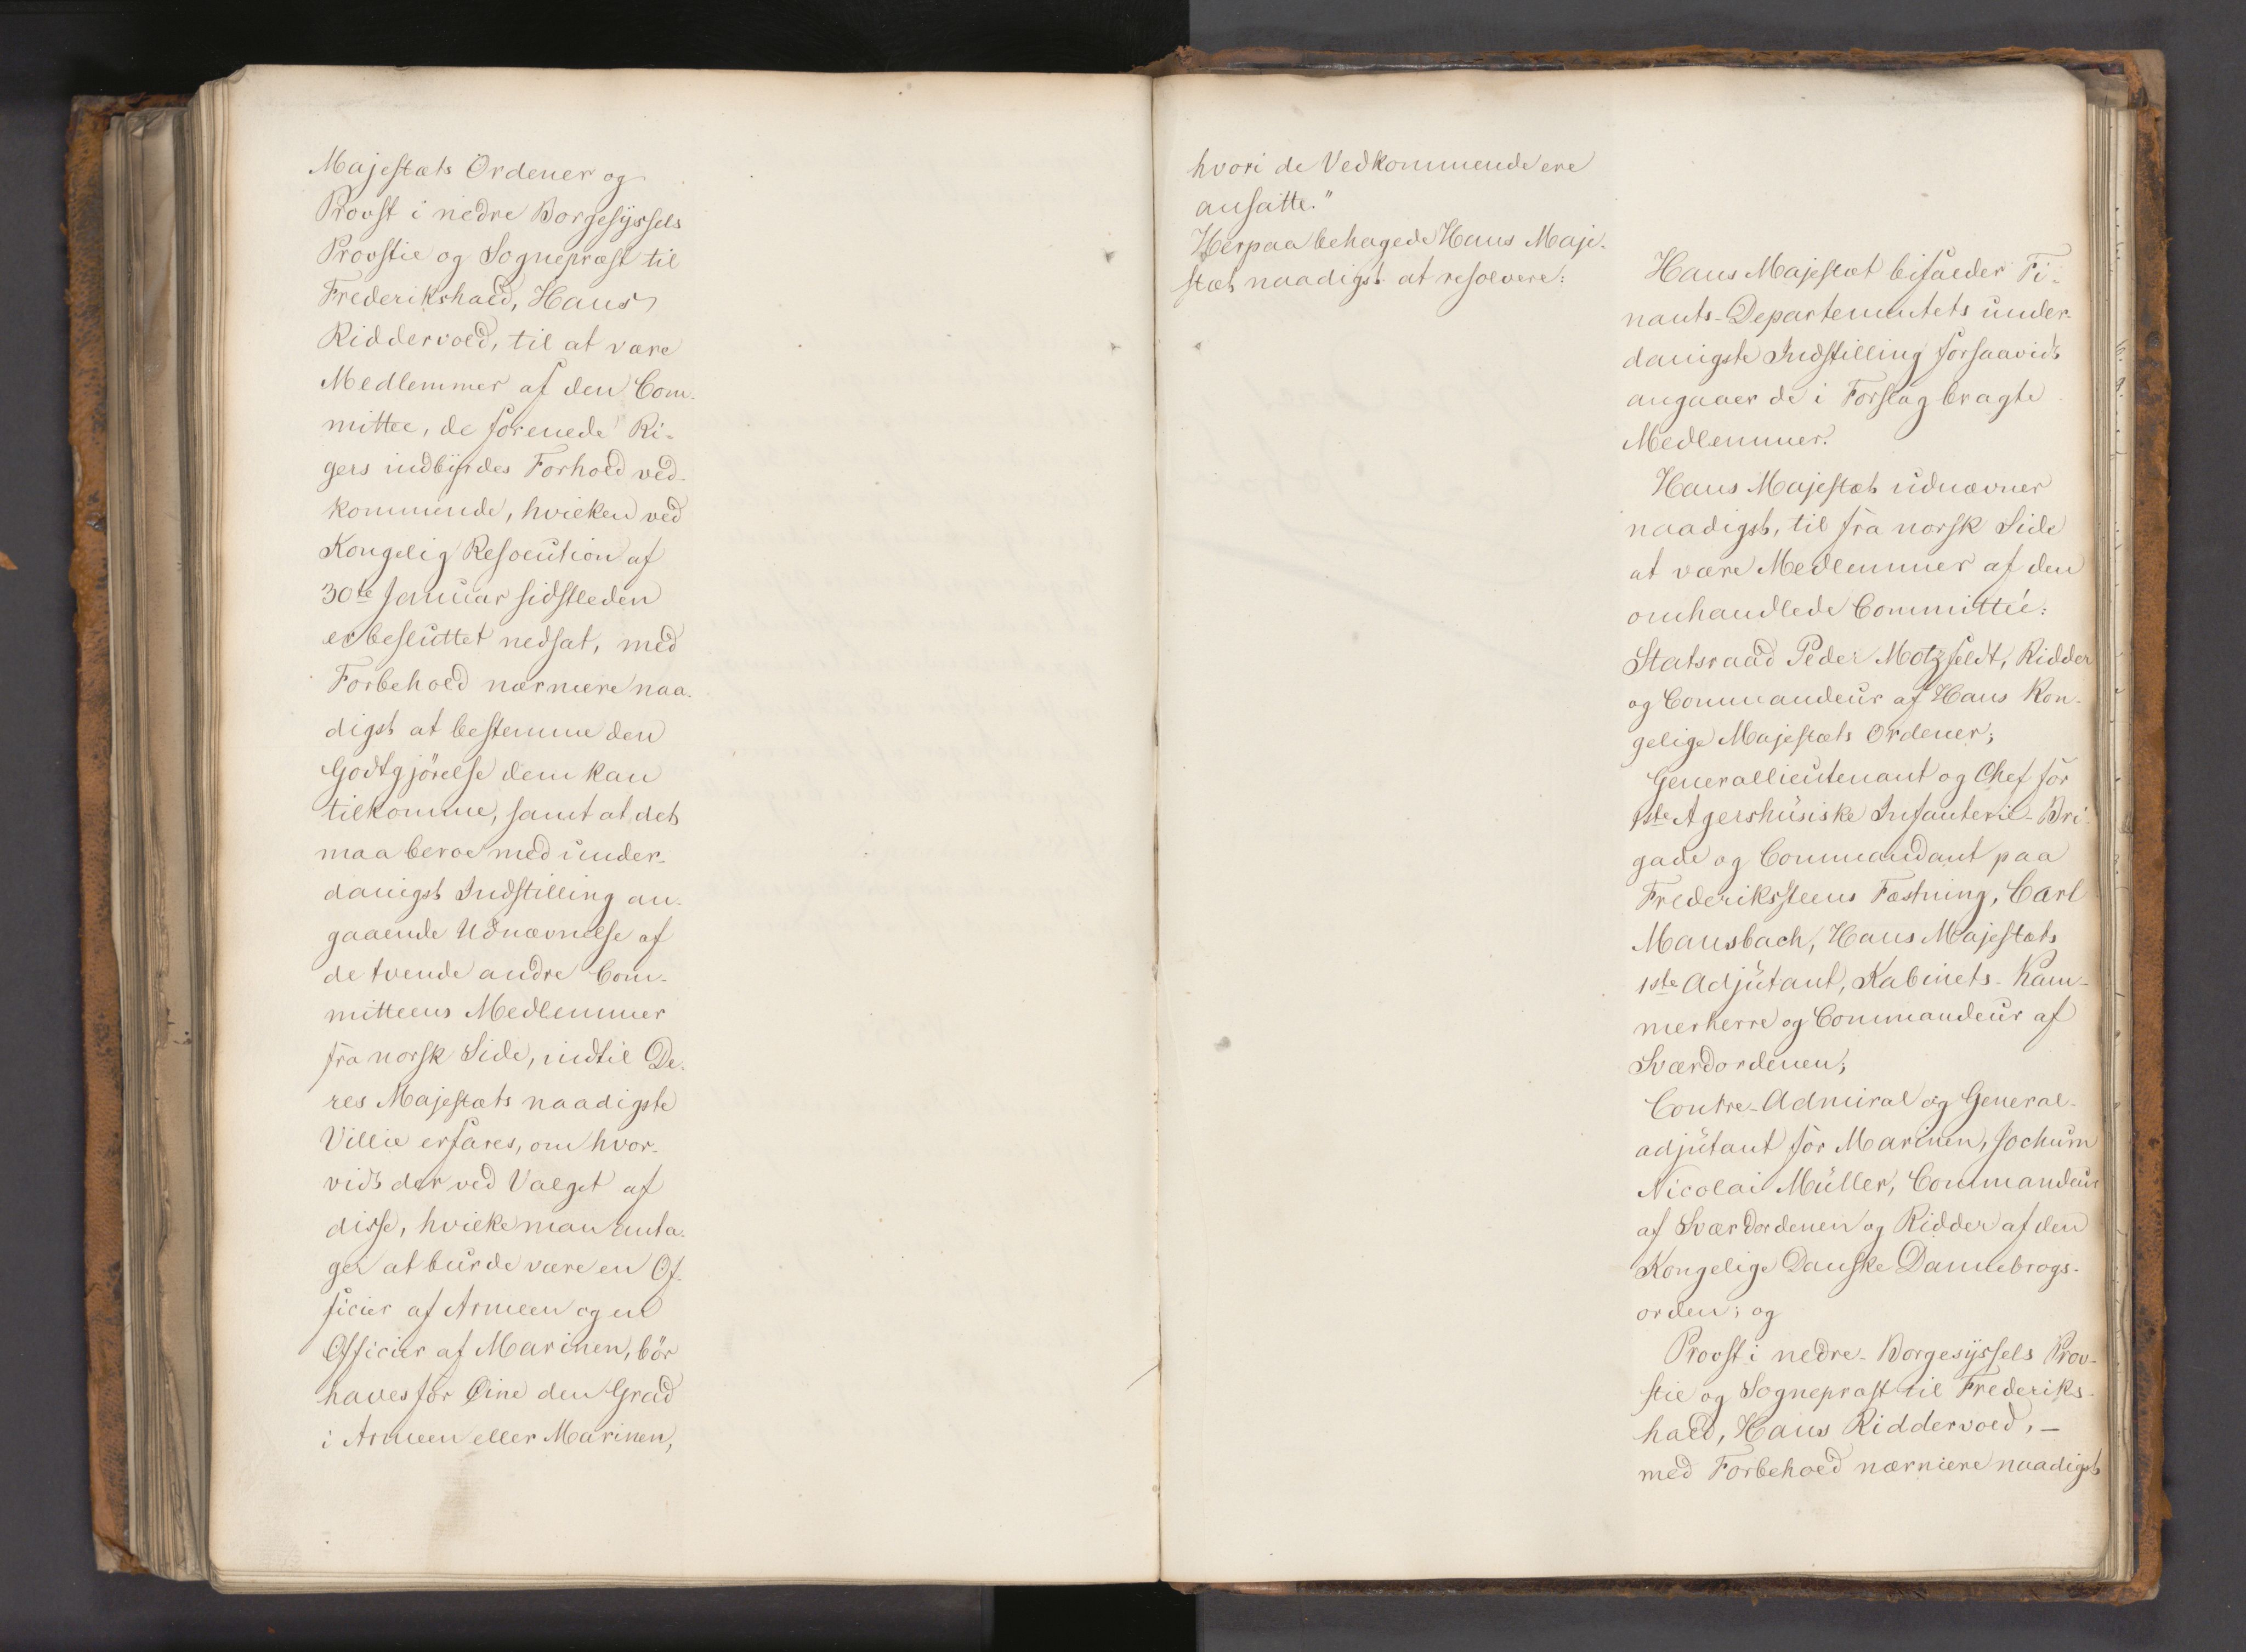 Majestæts Ordener og
Provst i nedre Borgesyssels
Provstie og Sognepræst til
Frederikshald, Hans
Riddervold, til at være
Medlemmer af den Com-
mittee, de forenede Ri-
gers indbyrdes Forhold ved-
kommende, hvilken ved
Kongelig Resolution af
30te Januar sidstleden
er besluttet nedsat, med
Forbehold nærmere naa-
digst at bestemme den
Godtgjörelse dem kan
tilkomme, samt at det
maa beroe med under-
danigst Indstilling an-
gaaende Udnævnelse af
de tvende andre Com-
mitteens Medlemmer
fra norsk Side, indtil De-
res Majestæts naadigste
Villie erfares, om hvor-
vidt der ved Valget af
disse, hvilke man anta-
ger at burde være en Of-
ficier af Armeen og en
Officier af Marinen, bör
haves for Øine den Grad
i Armeen eller Marinen,
hvori de Vedkommende ere
ansatte."
Herpaa behagede Hans Maje-
stæt naadigst at resolvere:
Hans Majestæt bifalder Fi-
nants-Departementets under-
danigste Indstilling forsaavidt
angaaer de i Forslag bragte
Medlemmer.
Hans Majestæt udnævner
naadigst, til fra norsk Side
at være Medlemmer af den
omhandlede Committée:
Statsraad Peder Motzfeldt, Ridder
og Commandeur af Hans Kon-
gelige Majestæts Ordener;
Generallieutenant og Chef for
1ste Agershusiske Infanterie-Bri-
gade og Commandant paa
Frederikssteens Fæstning, Carl
Mansbach, Hans Majestæts
1ste Adjutant, Kabinets-Kam-
merherre og Commandeur af
Sværdordenen;
Contre-Admiral og General-
adjutant for Marinen, Jochum
Nicolai Müller, Commandeur
af Sværdordenen og Ridder af den
Kongelige Danske Dannebrogs-
orden; og
Provst i nedre-Borgesyssels Prov-
stie og Sognepræst til Frederiks-
hald, Hans Riddervold, —
med Forbehold nærmere naadigst